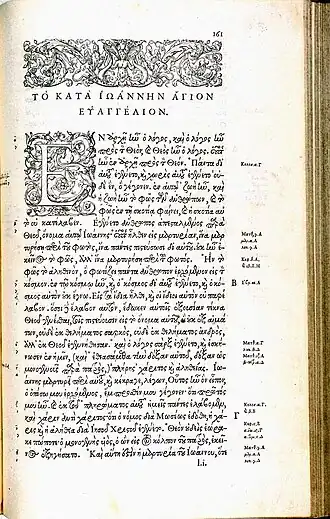 161
ΤΟ ΚΑΤΑ ΙΩΑΝΝΗΝ ΑΓΙΟΝ
ΕΥΑΓΓΕΛΙΟΝ.
ΕΝ ἀρχῇ ἦν ὁ λόγος, καὶ ὁ λόγος ἦν
πρὸς τὸν Θεὸν, καὶ Θεὸς ἦν ὁ λόγος. Οὗτος
ἦν ἐν ἀρχῇ πρὸς τὸν Θεόν. Πάντα δι'
αὐτοῦ ἐγένετο, καὶ χωρὶς αὐτοῦ ἐγένετο οὐ-
δὲ ἓν, ὃ γέγονεν. ἐν αὐτῷ ζωὴ ἦν, καὶ
ἡ ζωὴ ἦν τὸ φῶς τῶν ἀνθρώπων, καὶ τὸ
φῶς ἐν τῇ σκοτίᾳ φαίνει, καὶ ἡ σκοτία αὐ-
τὸ οὐ κατέλαβεν. Ἐγένετο ἄνθρωπος ἀπεσταλμένος παρὰ
Θεοῦ, ὄνομα αὐτῷ Ἰωάννης· οὗτος ἦλθεν εἰς μαρτυρίαν, ἵνα μαρ-
τυρήσῃ περὶ τοῦ φωτὸς, ἵνα πάντες πιστεύσωσι δι' αὐτοῦ. οὐκ ἦν ἐ-
κεῖνος τὸ φῶς, ἀλλ' ἵνα μαρτυρήσῃ περὶ τοῦ φωτός. Ἦν τὸ
φῶς τὸ ἀληθινὸν, ὃ φωτίζει πάντα ἄνθρωπον ἐρχόμενον εἰς τὸν
κόσμον. ἐν τῷ κόσμῳ ἦν, καὶ ὁ κόσμος δι' αὐτοῦ ἐγένετο, καὶ ὁ κό-
σμος αὐτὸν οὐκ ἔγνω. Εἰς τὰ ἴδια ἦλθε, καὶ οἱ ἴδιοι αὐτὸν οὐ παρέ-
λαβον. ὅσοι δὲ ἔλαβον αὐτὸν, ἔδωκεν αὐτοῖς ἐξουσίαν τέκνα
Θεοῦ γενέσθαι, τοῖς πιστεύουσιν εἰς τὸ ὄνομα αὐτοῦ, οἳ οὐκ ἐξ αἱμά-
των, οὐδὲ ἐκ θελήματος σαρκὸς, οὐδὲ ἐκ θελήματος ἀνδρὸς,
ἀλλ' ἐκ Θεοῦ ἐγεννήθησαν. καὶ ὁ λόγος σὰρξ ἐγένετο, καὶ ἐσκή-
νωσεν ἐν ἡμῖν, (καὶ ἐθεασάμεθα τὴν δόξαν αὐτοῦ, δόξαν ὡς
μονογενοῦς παρὰ πατρὸς,) πλήρης χάριτος καὶ ἀληθείας. Ἰω-
άννης μαρτυρεῖ περὶ αὐτοῦ, καὶ κέκραγε, λέγων, Οὗτος ἦν ὃν εἶπον,
ὁ ὀπίσω μου ἐρχόμενος, ἔμπροσθέν μου γέγονεν· ὅτι πρῶτός
μου ἦν. καὶ ἐκ τοῦ πληρώματος αὐτοῦ ἡμεῖς πάντες ἐλάβομεν,
καὶ χάριν ἀντὶ χάριτος· ὅτι ὁ νόμος διὰ Μωσέως ἐδόθη, ἡ χά-
ρις καὶ ἡ ἀλήθεια διὰ Ἰησοῦ Χριστοῦ ἐγένετο. Θεὸν οὐδεὶς ἑώρα-
κε πώποτε· ὁ μονογενὴς υἱὸς, ὁ ὢν εἰς τὸν κόλπον τοῦ πατρὸς, ἐκεῖ-
νος ἐξηγήσατο. Καὶ αὕτη ἐστὶν ἡ μαρτυρία τοῦ Ἰωάννου, ὅτε
Β
Γ